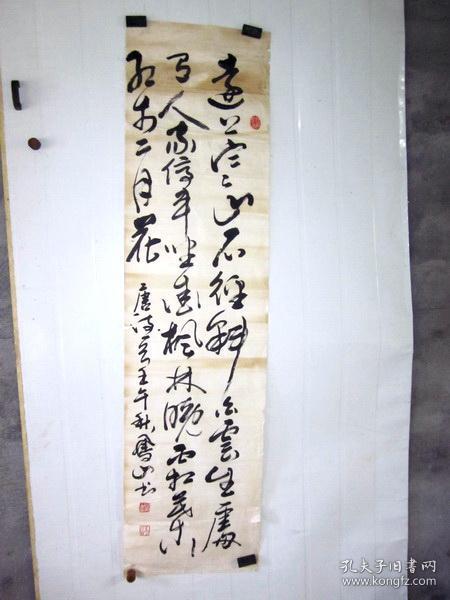 遠上寒山石徑斜白雲生處
有人家停車坐愛楓林晚霜葉
紅於二月花
唐诗一首壬午秋鳳山书
孔夫子旧书网
www.kongfz.com